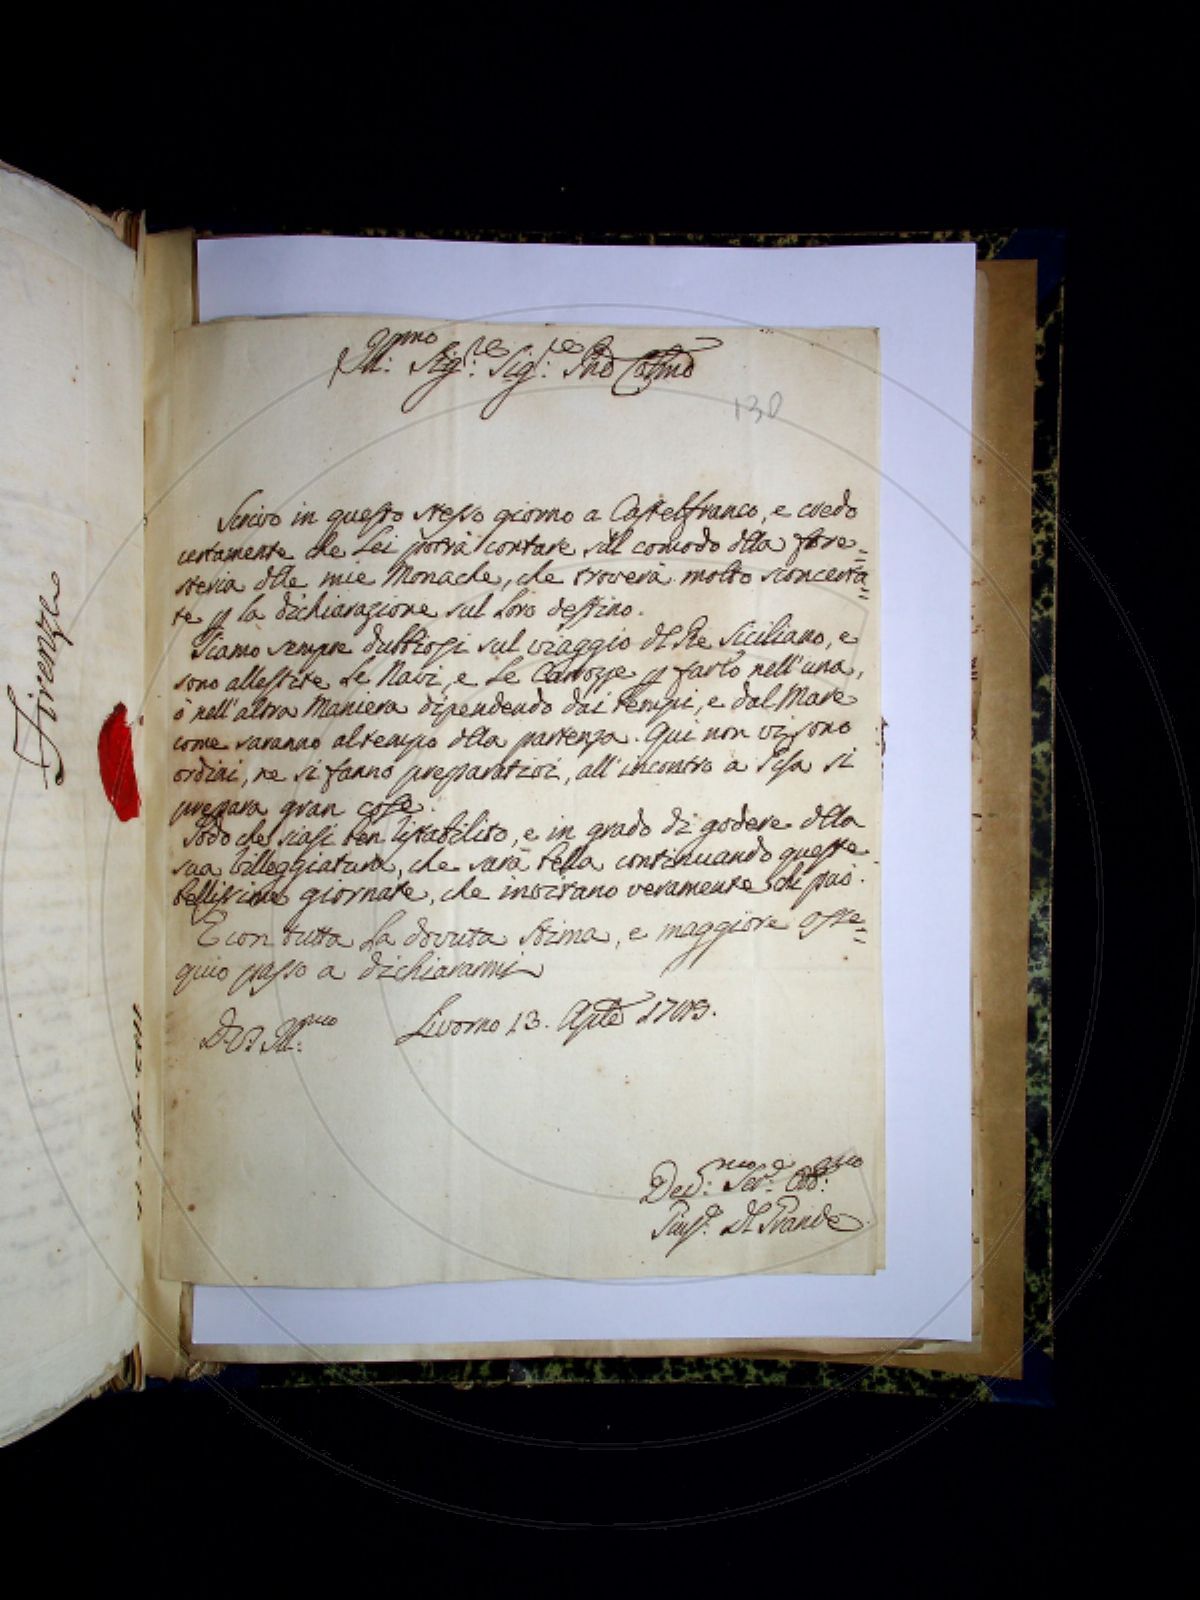 Ill:mo Sig:re Sig:re Pne Colmo
130
Scrivo in questo stesso giorno a Castelfranco, e credo
certamente che Lei potrà contare sul comodo dlla fore=
steria dlle mie Monache, che troverà molto sconcerta=
te p la dichiarazione sul loro destino.
Siamo sempre dubbiosi sul viaggio dl Re Siciliano, e
sono allestite le Navi, e le Carozze p farlo nell'una,
ò nell'altra Maniera dipendendo dai tempi, e dal Mare
come saranno al tempo dlla partenza. Qui non vi sono
ordini, ne si fanno preparativi, all'incontro a Pisa si
prepara gran cose.
Godo che siasi ben ristabilito, e in grado di godere dlla
sua Villeggiatura, che sarà bella continuando queste
bellissime giornate, che invitano veramente chi può.
E con tutta la dovuta stima, e maggiore osse=
quio passo a dichiararmi
D VS Ill:
Livorno 13. Aple
Dev:mo Ser:e Obb:mo
Dl Grande
Firenze